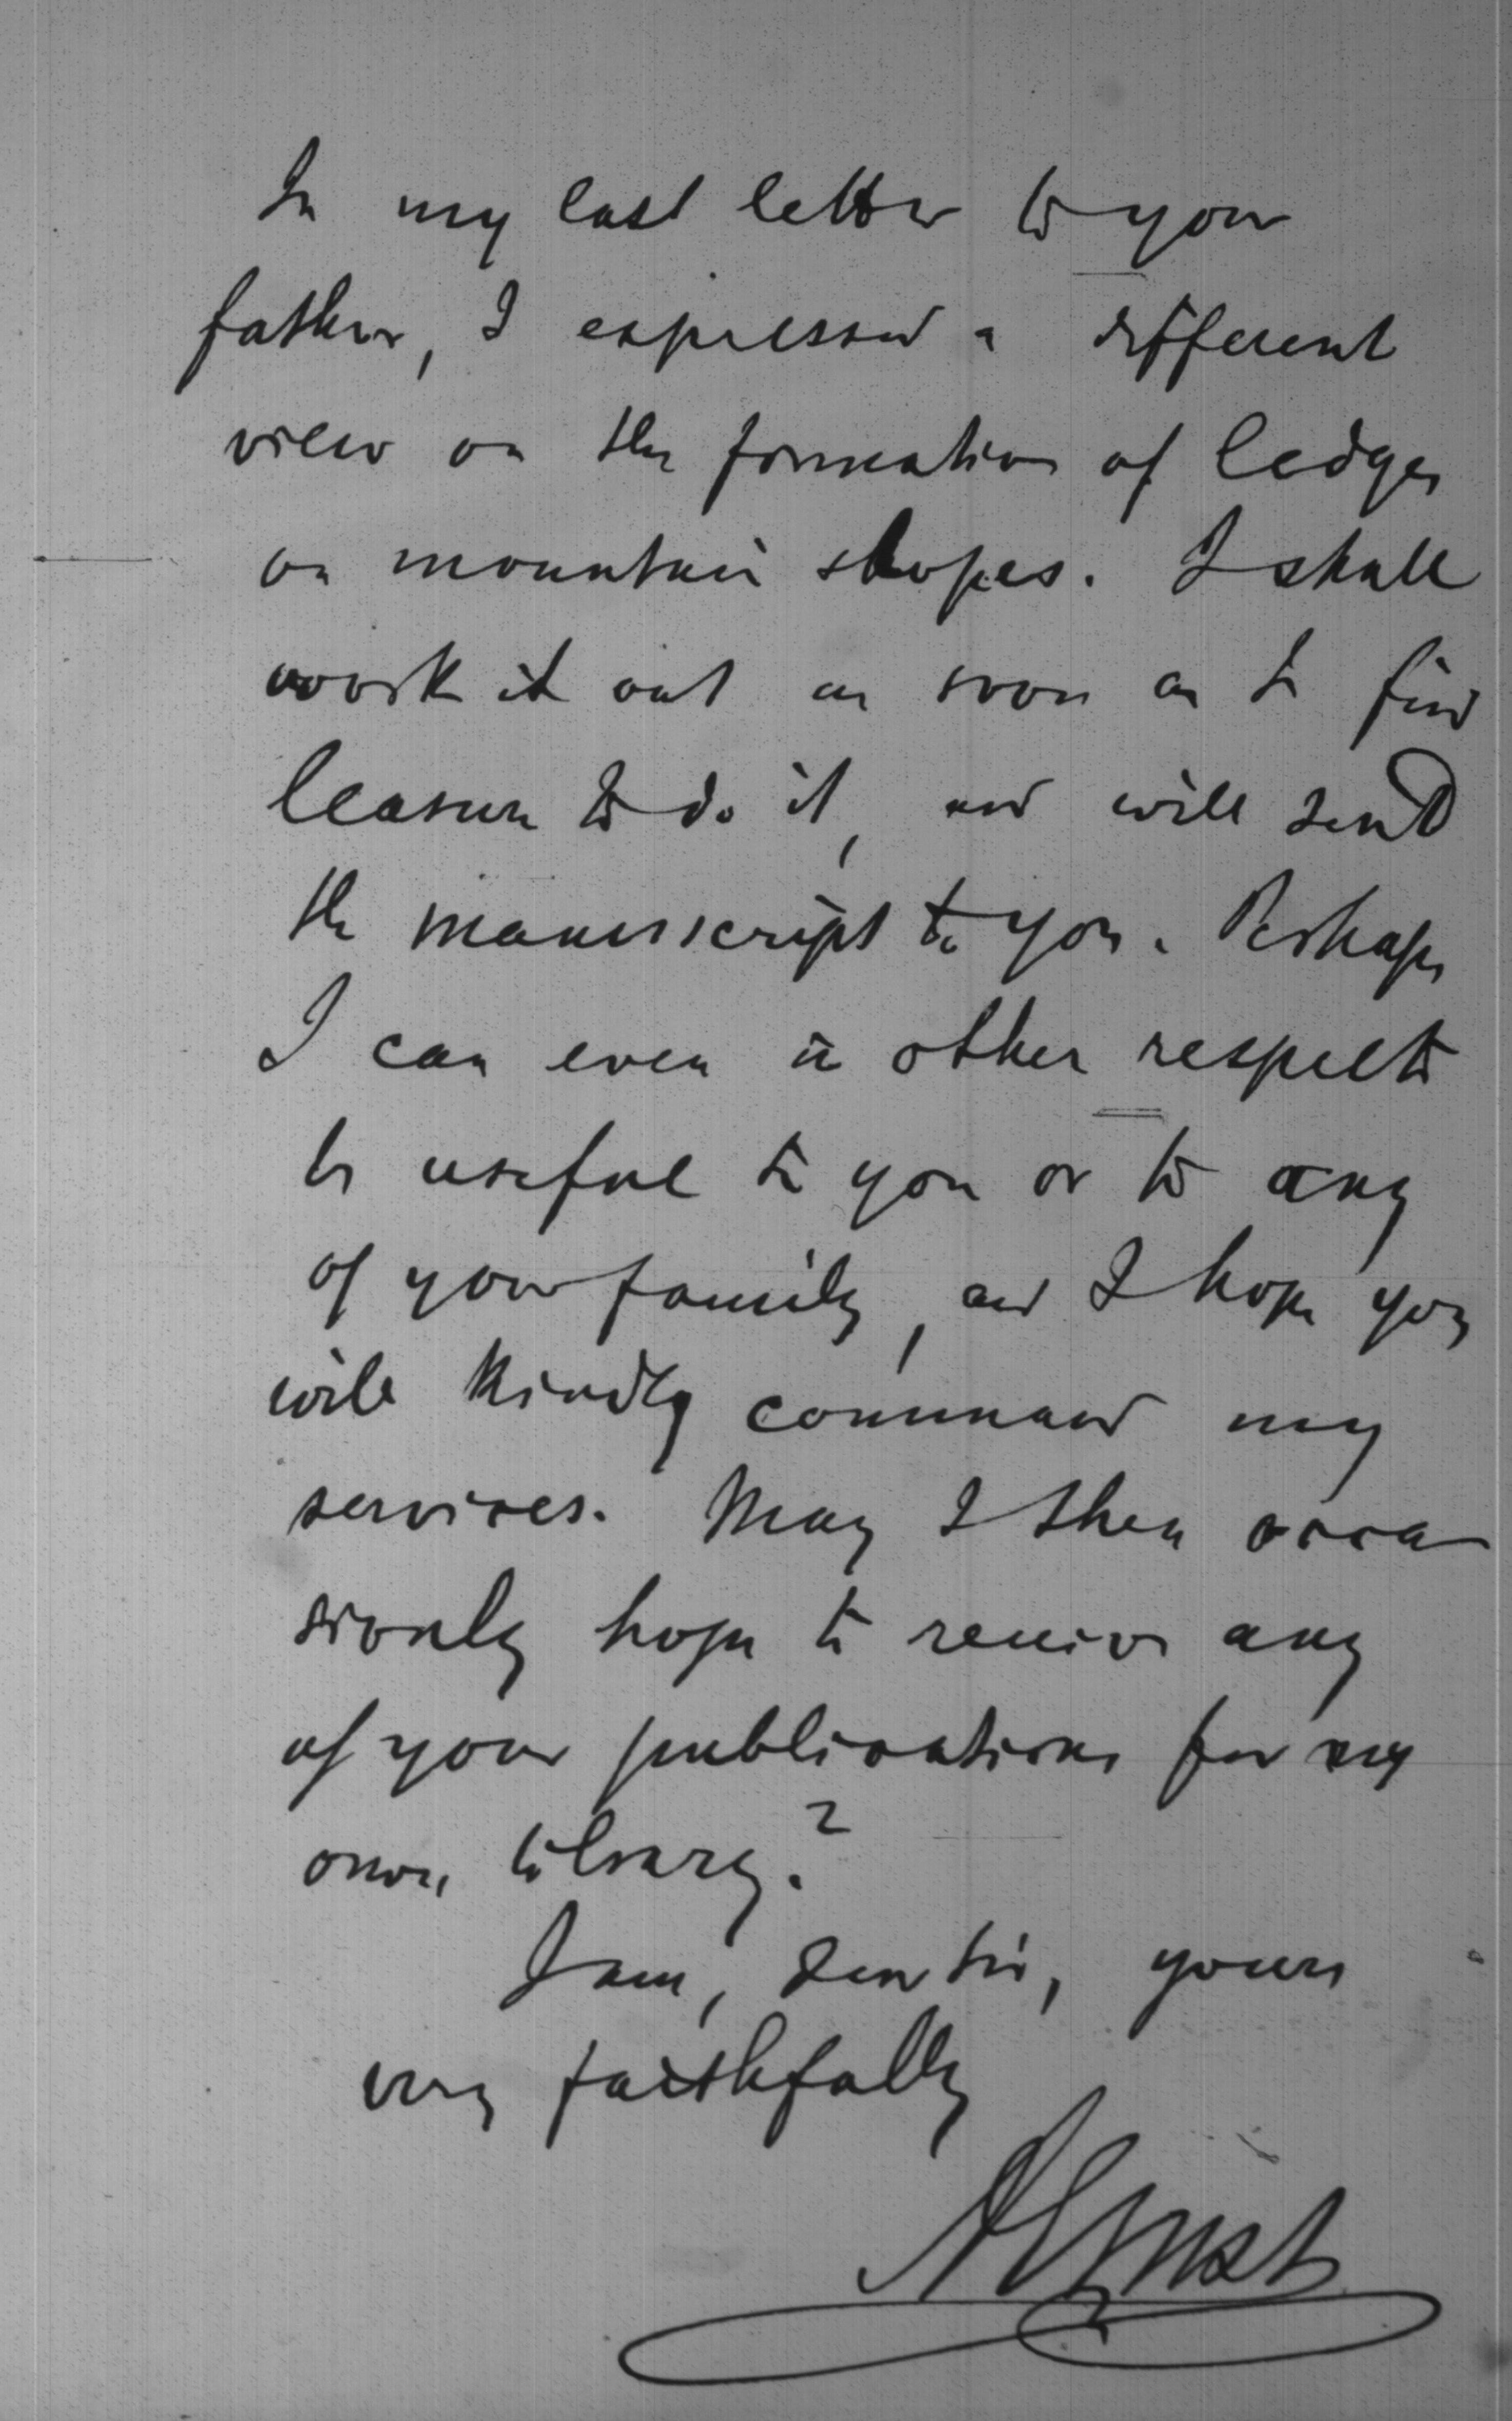 In my last letter to your
father, I expressed a different
view on the formation of ledges
on mountain slopes. I shall
work it out as soon as I find
leasure to do it, and will send
the manuscript to you. Perhaps
I can even in other respects
be useful to you or to any
of your family, and I hope you
will kindly command my
services. May I then occa
sionly hope to receive any
of your publications for my
own library?
I am, dear Sir, yours
very faithfully
AErnst